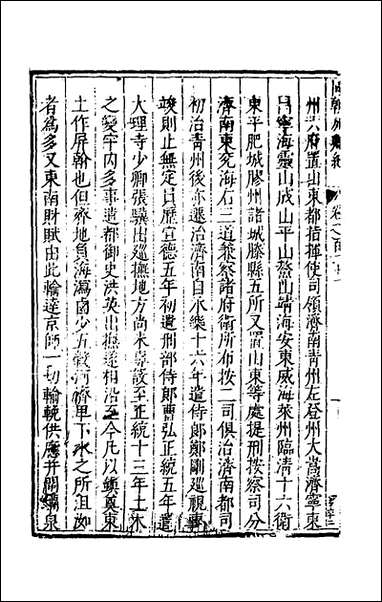 州六府置山東都指揮使司領濟南青州左登州大嵩濟寧東
昌寧海靈山成山平山鰲山靖海安東威海萊州臨清十六衛
東平肥城膠州諸城滕縣五所又置山東等處提刑按察司分
濟南東兖海右三道兼察諸府衛所布按二司俱治濟南都司
初治青州後亦遷治濟南自永樂十六年遣侍郎鄭剛巡視事
竣則止無定日歷宣德五年初遣刑部侍郎曹弘正統五年遣
大理寺少卿張驥出巡撫地方尚未專敕至正統十三年土木
之變牢內多事遣都御史洪英出撫遂相沿至今凡以鎮奠東
土作屏翰也但齊地負海瀉鹵少五穀河濟里下水之所沮洳
者為多又東南財賦由此輸達京師一切輸輓供應并開濬泉